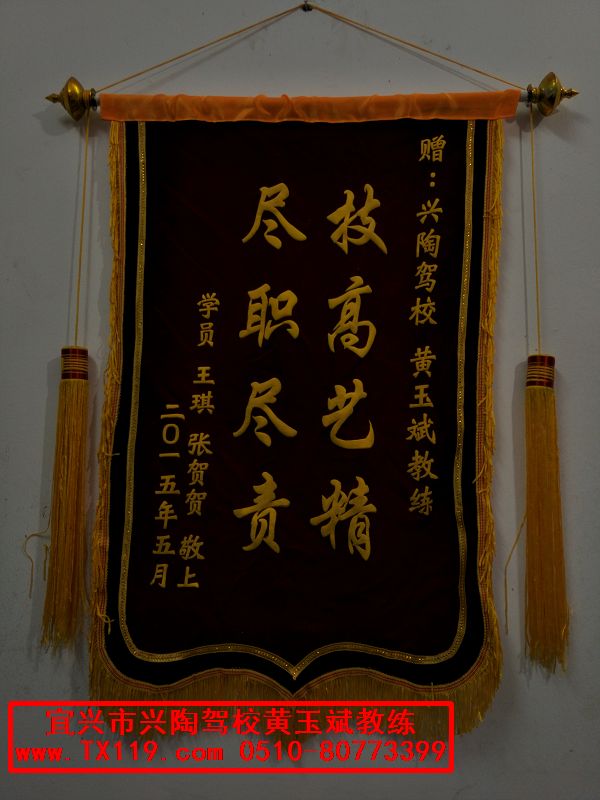 赠：兴陶驾校 黄玉斌教练
技高艺精
尽职尽责
学员 王琪 张贺贺 敬上
二〇一五年五月
宜兴市兴陶驾校黄玉斌教练
www.TX119.com 0510-80773399